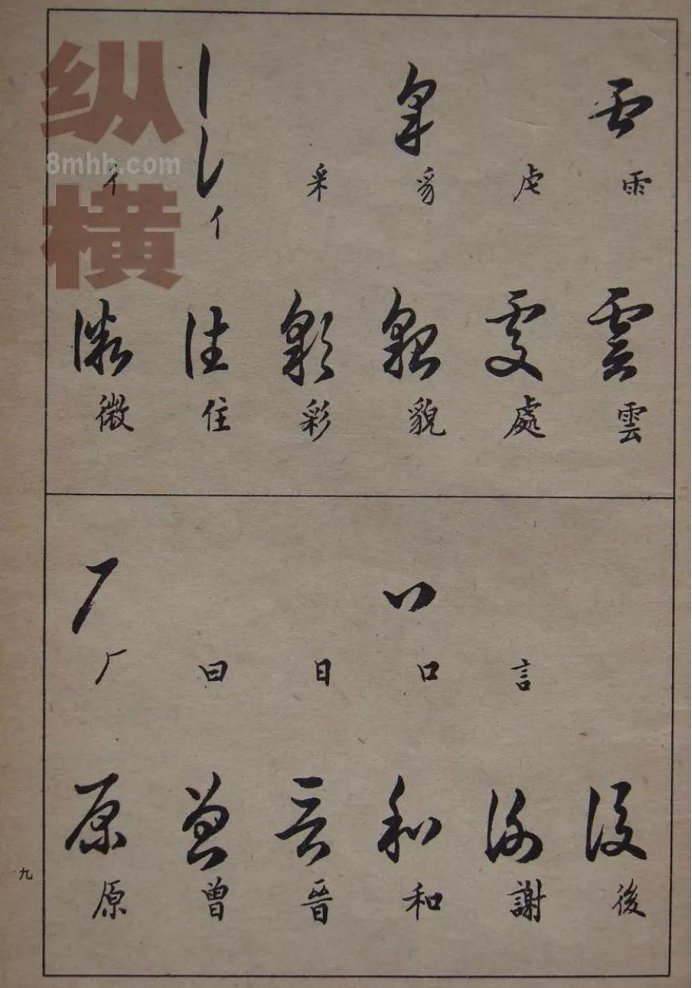 雨 虍 豸 釆 亻 彳
雲 處 貌 彩 住 微
言 口 日 曰 厂
後 謝 和 晉 曾 原
九
纵横
8mhh.com